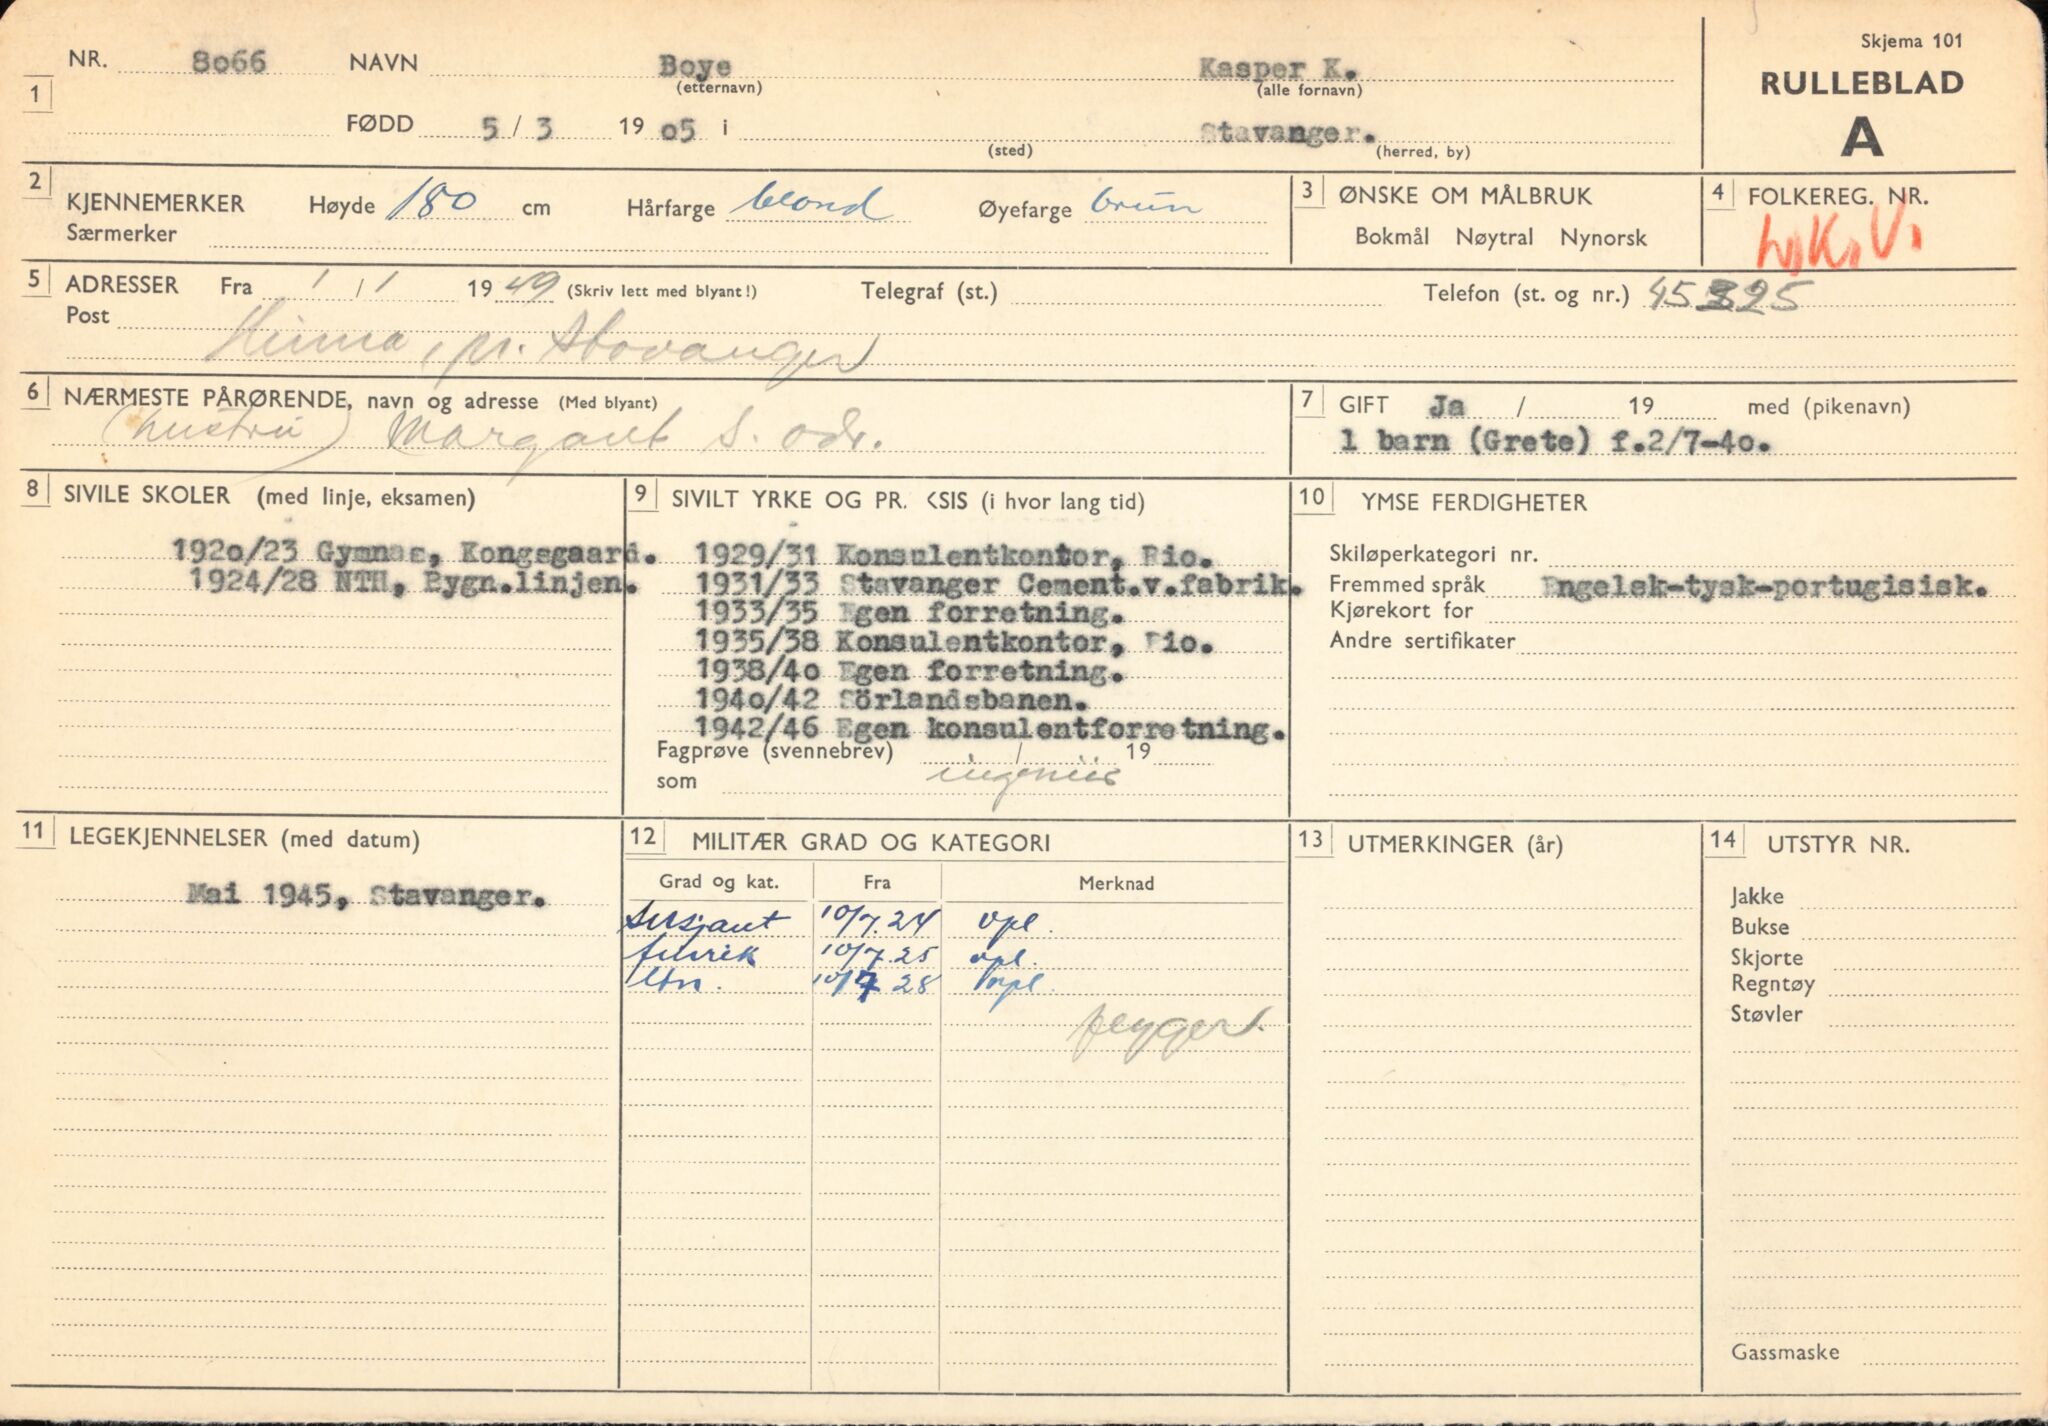 Skjema 101
RULLEBLAD
A
1 NR. 8o66 NAVN Boye Kasper K.
(etternavn) (alle fornavn)
FØDD 5 / 3 19 o5 i Stavanger.
(sted) (herred, by)
2 KJENNEMERKER Høyde 180 cm Hårfarge blond Øyefarge brun
Særmerker
3 ØNSKE OM MÅLBRUK
Bokmål Nøytral Nynorsk
4 FOLKEREG. NR.
L.K.V.
5 ADRESSER Fra 1 / 1 19 49 (Skriv lett med blyant!) Telegraf (st.) Telefon (st. og nr.) 45325
Post Hinna, pr. Stavanger
6 NÆRMESTE PÅRØRENDE, navn og adresse (Med blyant)
(hustru) Margaret s. adr.
7 GIFT Ja / 19 med (pikenavn)
1 barn (Grete) f.2/7-4o.
8 SIVILE SKOLER (med linje, eksamen)
192o/23 Gymnas, Kongsgaard.
1924/28 NTH, Bygn.linjen.
9 SIVILT YRKE OG PR. KSIS (i hvor lang tid)
1929/31 Konsulentkontor, Rio.
1931/33 Stavanger Cement.v.fabrik.
1933/35 Egen forretning.
1935/38 Konsulentkontor, Rio.
1938/4o Egen forretning.
194o/42 Sörlandsbanen.
1942/46 Egen konsulentforretning.
Fagprøve (svennebrev) / 19
som ingeniør
10 YMSE FERDIGHETER
Skiløperkategori nr.
Fremmed språk Engelsk-tysk-portugisisk.
Kjørekort for
Andre sertifikater
11 LEGEKJENNELSER (med datum)
Mai 1945, Stavanger.
12 MILITÆR GRAD OG KATEGORI
Grad og kat. Fra Merknad
Sersjant 10/7.24 vpl.
fenrik 10/7.25 vpl.
ltn. 10/7 28 vpl.
flyger.
13 UTMERKINGER (år)
14 UTSTYR NR.
Jakke
Bukse
Skjorte
Regntøy
Støvler
Gassmaske